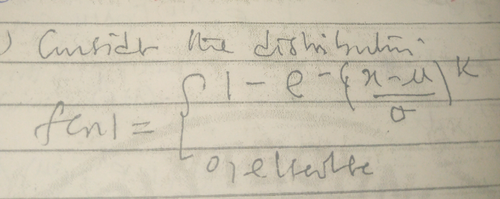 ) Consider the distribution:
f(x) = { 1 - e^-((x-μ)/σ)^k
0, elsewhere